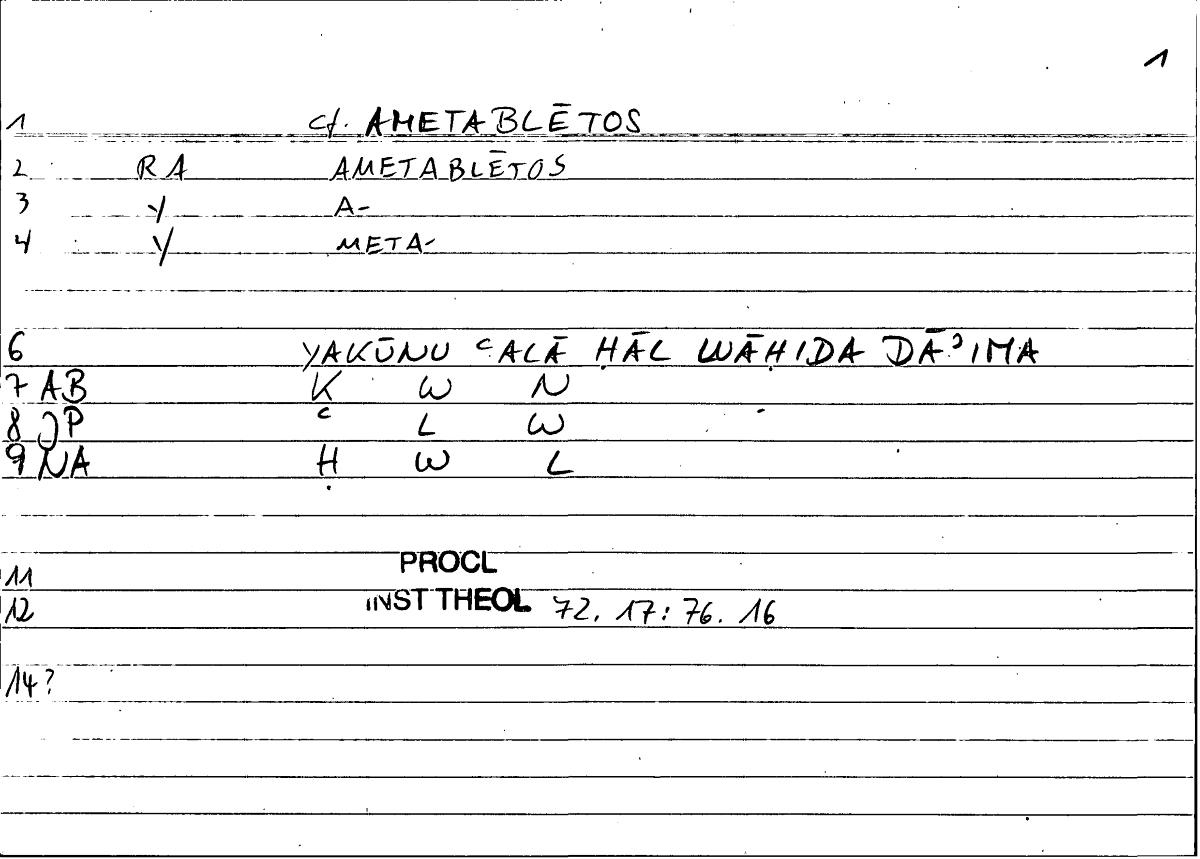 1
1 cf. AMETABLĒTOS
2 RA AMETABLĒTOS
3 Y A-
4 Y META-
6 YAKŪNU ʿALĀ ḤĀL WĀḤIDA DĀʾIMA
7 AB K W N
8 JP ʿ L W
9 NA Ḥ W L
11 PROCL
12 INST THEOL 72. 17: 76. 16
14?